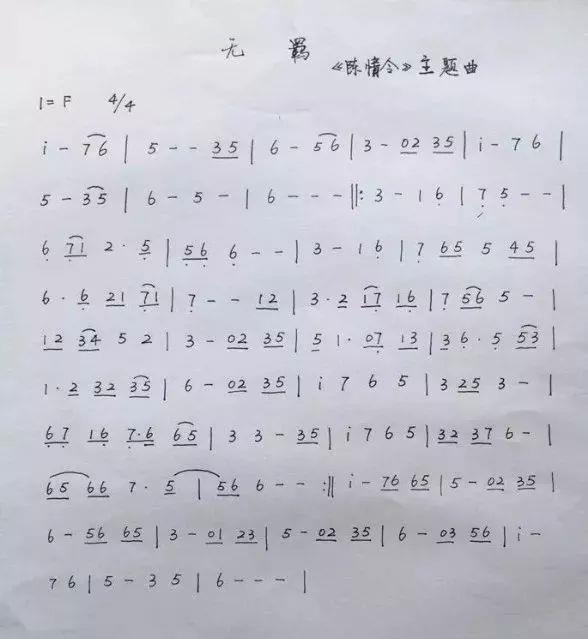 无 羁
《陈情令》主题曲
1= F 4/4
i - 7 6 | 5 - - 3 5 | 6 - 5 6 | 3 - 02 35 | i - 7 6 |
5 - 35 | 6 - 5 - | 6 - - - ‖: 3 - 1 6 | 7 5 - - |
6 71 2 · 5 | 56 6 - - | 3 - 1 6 | 7 65 5 45 |
6 · 6 21 71 | 7 - - 12 | 3 · 2 17 16 | 7 56 5 - |
12 34 5 2 | 3 - 02 35 | 5 1 · 07 13 | 36 · 5 53 |
1 · 2 32 35 | 6 - 02 35 | i 7 6 5 | 3 25 3 - |
67 16 7·6 65 | 3 3 - 35 | i 7 6 5 | 32 37 6 - |
65 66 7 · 5 | 56 6 - - :‖ i - 76 65 | 5 - 02 35 |
6 - 56 65 | 3 - 01 23 | 5 - 02 35 | 6 - 03 56 | i -
7 6 | 5 - 3 5 | 6 - - - |